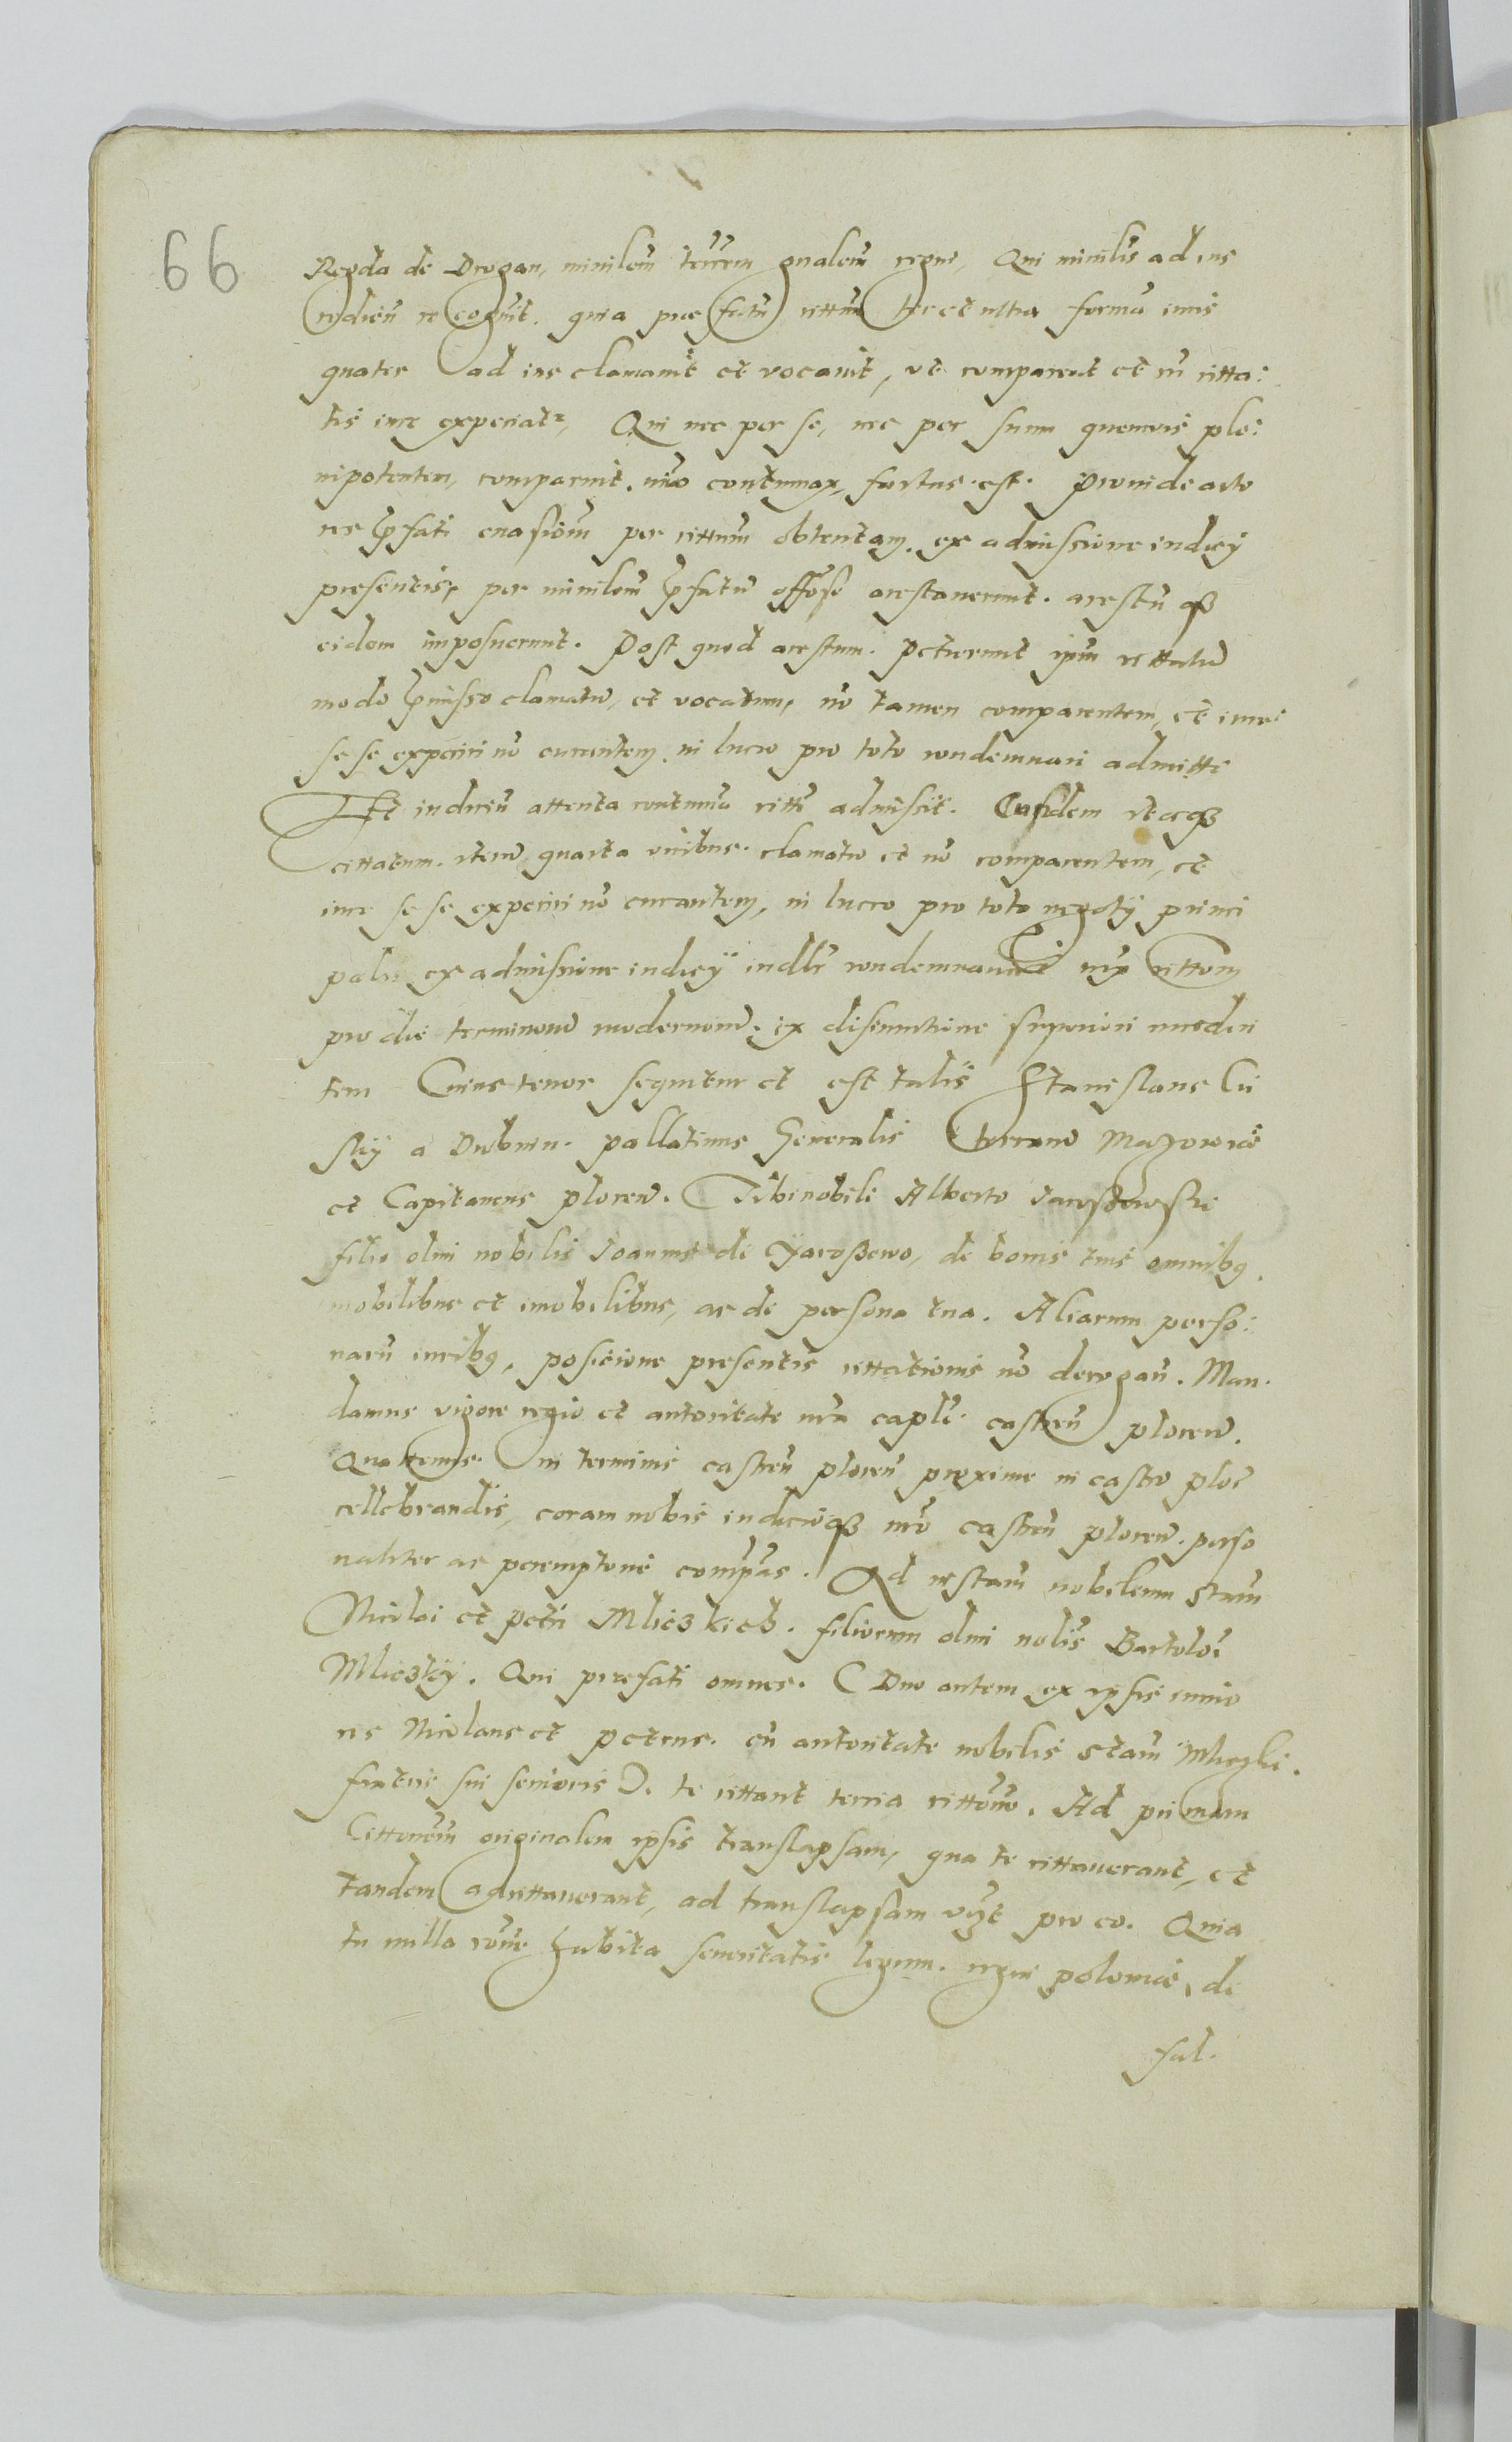 66
Regda de Drogan, ministem terrem gnalem regni, Qui ministis ad ius
rediens recognit. quia praefatu cittum ter et ultra forma iuris
quater ad ius clamavit et vocavit, ut compareat et cu citta:
tis iure experiatr, Qui nec per se, nec per suum quemvis ple:
nipotentem, comparuit. imo contumax, factus est. Proinde acto
res pfati evasiom per cittum obtentam. ex admissione iudicy
presentis, per ministem pfatu offose arestaverunt. arestu qz
eidem imposuerunt. Post quod arestum. petierunt ipm cittatu
modo pmisso clamatu, et vocatum, no tamen comparentem, et iure
se se experiri no curantem, in lucro pro toto condemnari admitti
Et iudiciu attenta contumacia citti admisit. Eusdem itaqz
cittatum. iteru quarta vicibus. clamatu et no comparentem, et
iure se se experiri no curantem, in lucro pro toto negoty princi
palis ex admissione iudicy iudlr condemnavit iux cittom
pro die terminoru modernoru. ex discuntinue superiori inciden
tem Cuius tenor sequitur et est talis Stanislaus
sky a pallatinus Generalis terraru Mazowiae
et Capitaneus plocen. Tibi nobili Alberto Jaroszewski
filio olim nobilis Joannis de Yaroszewo, de bonis tuis omnibq,
mobilibus et imobilibus, ac de persona tua. Aliarum perso:
naru iuribq, positione presentis cittationis no derogan. Man
damus vigore regio et autoritate nra caplī castren plocen.
Quatenus in terminis castren plocen proxime in castro ploc
cellebrandis, coram nobis iudicioqz nro castren plocen. perso
naliter ac peremptorie compas. Ad instam nobilium Stani
Nicolai et petri Mliczkich. filiorum olim nobis Bartolōi
Mliczky. Qui praefati omnes. Duo autem ex ipsis iunio
res Nicolaus et petrus. cu autoritate nobilis Stani Mliczki.
fratris sui senioris D. te cittant tercia cittone. Ad primam
Cittonem originalem ipsis translapsam, qua te cittaverant, et
tandem adcittaverant, ad translapsam vzt pro eo. Quia
tu nulla rone habita severitatis legum. regni poloniae, de
fal.